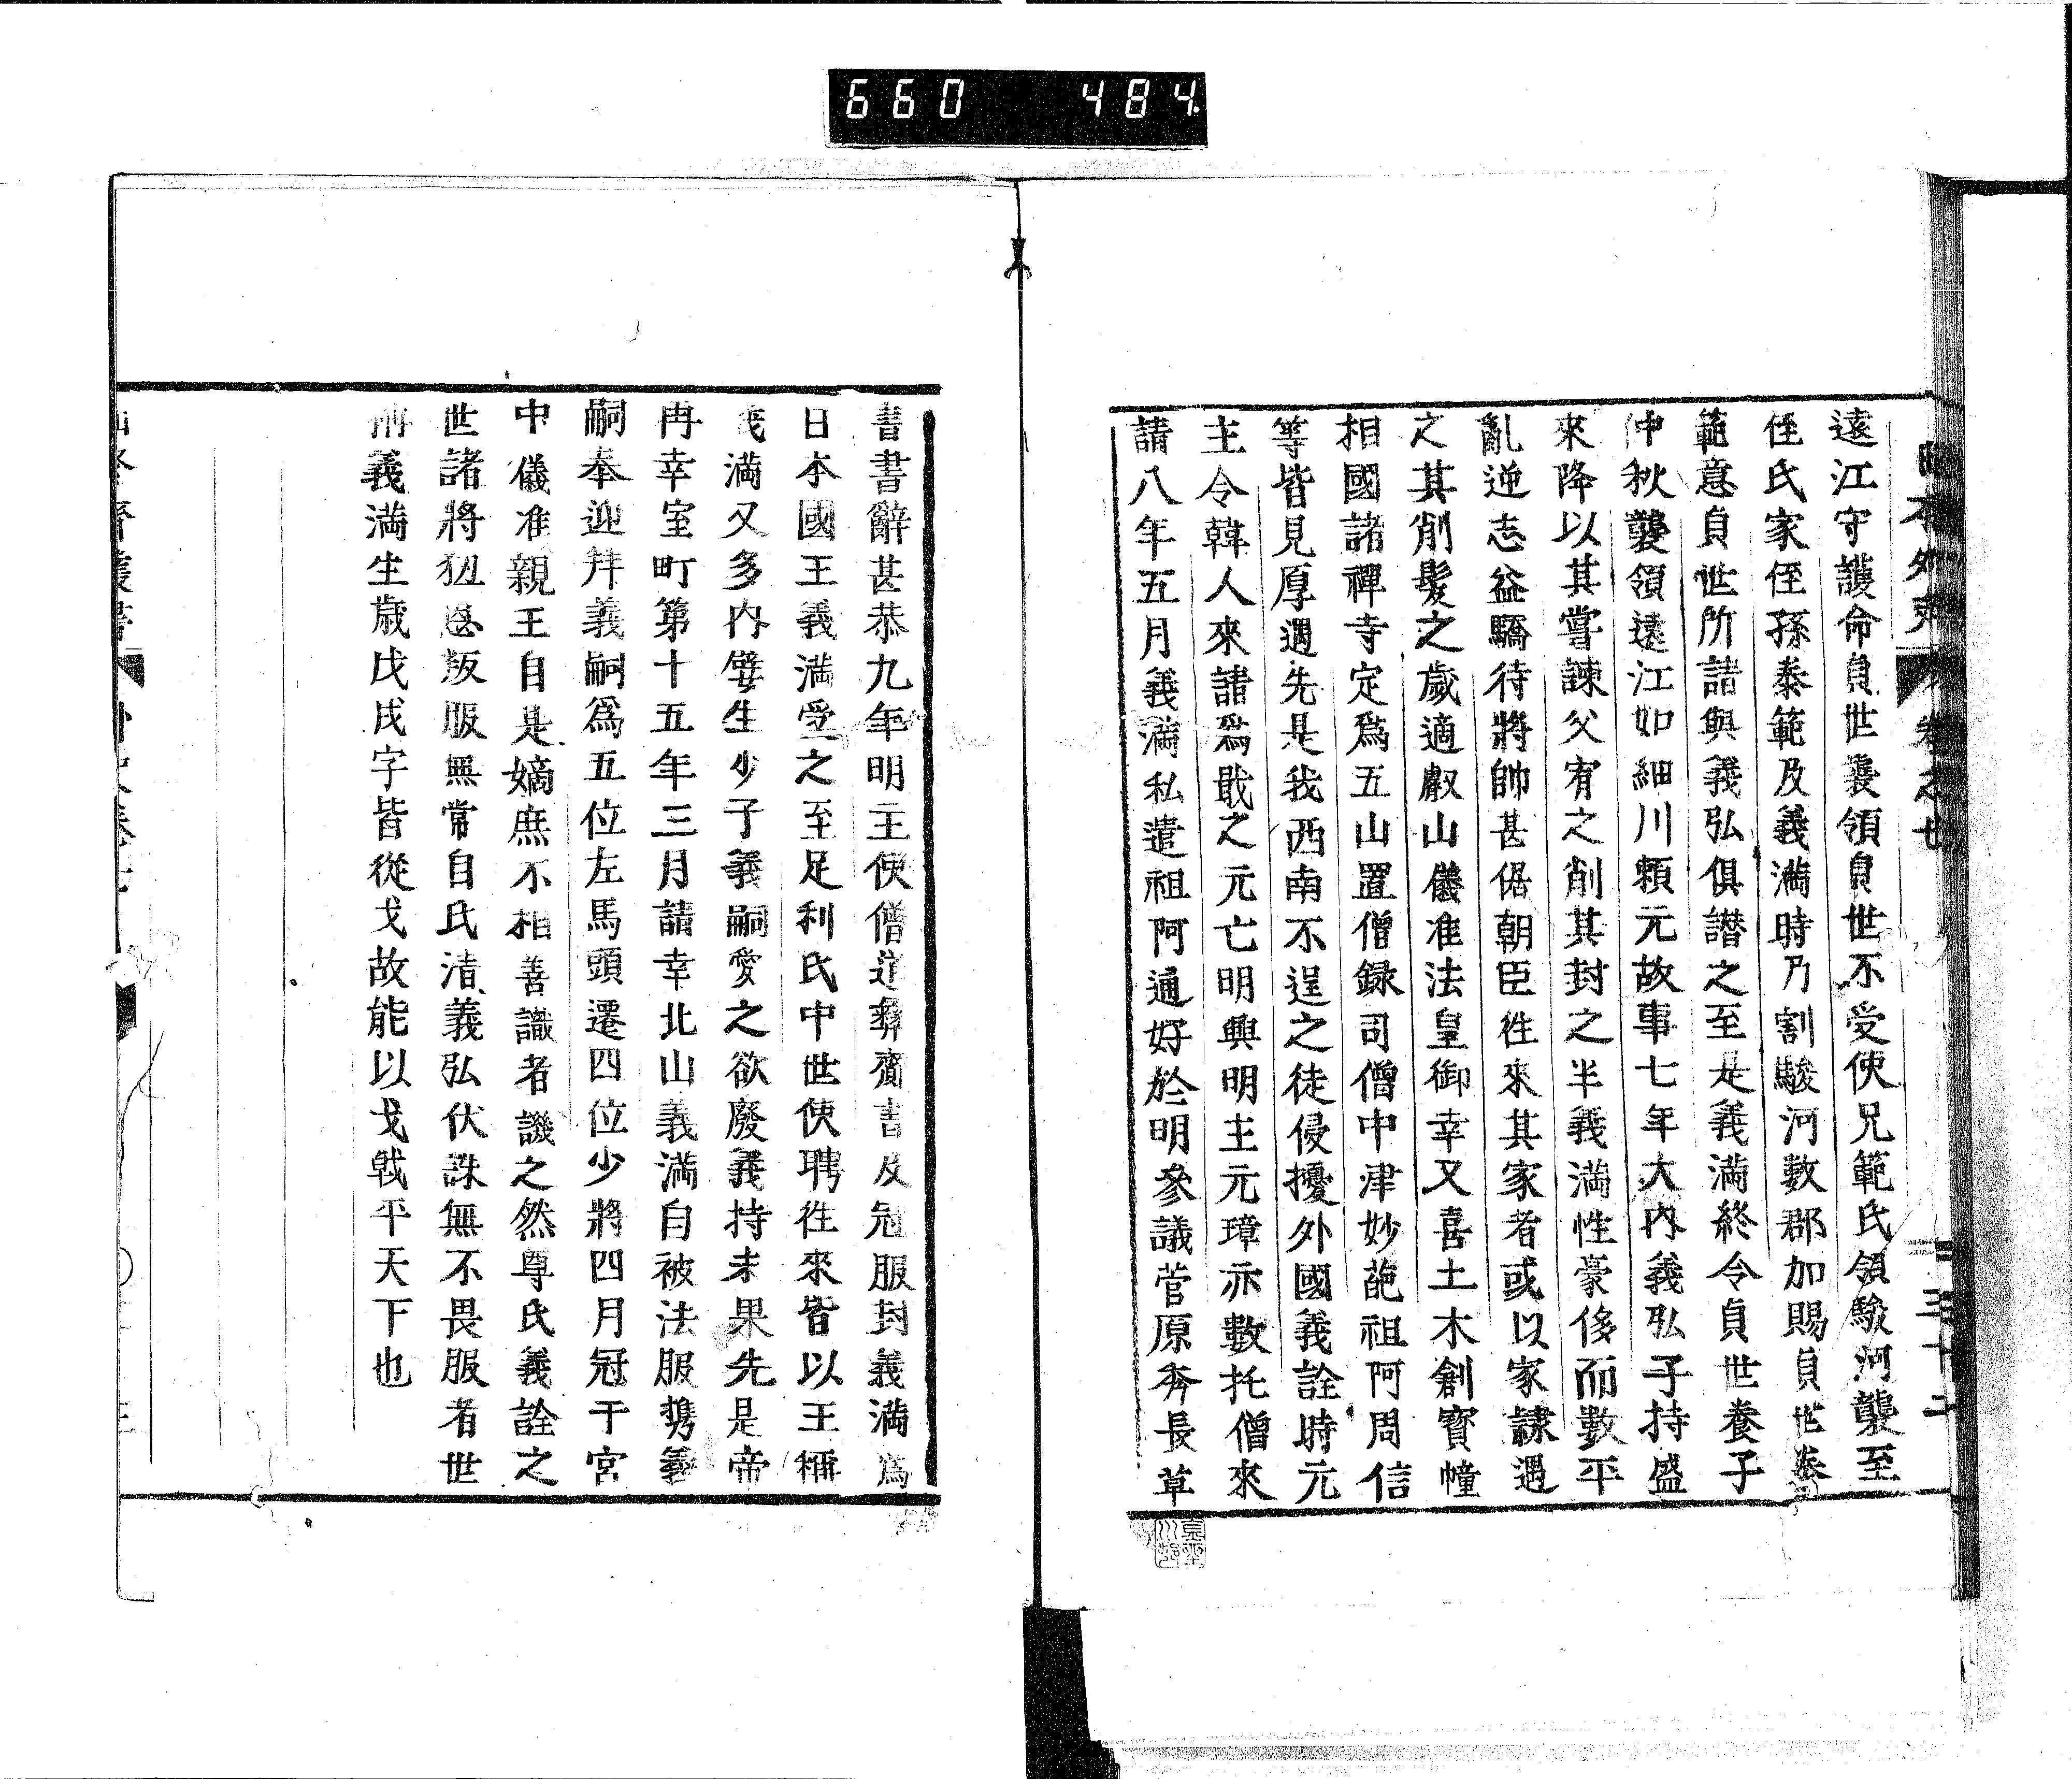 660 484
遠江守護命貞世襲領貞世不受使兄範氏領駿河襲至
侄氏家侄孫泰範及義滿時乃割駿河數郡加賜貞世泰
範意貞世所請與義弘俱譖之至是義滿終令貞世養子
仲秋襲領遠江如細川賴元故事七年大內義弘子持盛
來降以其嘗諫父宥之削其封之半義滿性豪侈而數平
亂逆志益驕待將帥甚倨朝臣徃來其家者或以家隷遇
之其削髮之歲適叡山儀准法皇御幸又喜土木創寶幢
相國諸禪寺定爲五山置僧録司僧中津妙葩祖阿周信
等皆見厚遇先是我西南不逞之徒侵擾外國義詮時元
主令韓人來請爲戢之元亡明興明主元璋亦數托僧來
請八年五月義滿私遣祖阿通好於明參議菅原秀長草
書書辭甚恭九年明主使僧道彝齎書及冠服封義滿爲
日本國王義滿受之至足利氏中世使聘徃來皆以王稱
義滿又多內嬖生少子義嗣愛之欲廢義持未果先是帝
再幸室町第十五年三月請幸北山義滿自被法服携義
嗣奉迎拜義嗣爲五位左馬頭遷四位少將四月冠于宮
中儀准親王自是嫡庶不相善識者譏之然尊氏義詮之
世諸將狃恩叛服無常自氏清義弘伏誅無不畏服者世
謂義滿生歲戊戌字皆從戈故能以戈戟平天下也
日本外史 卷之七 三十二